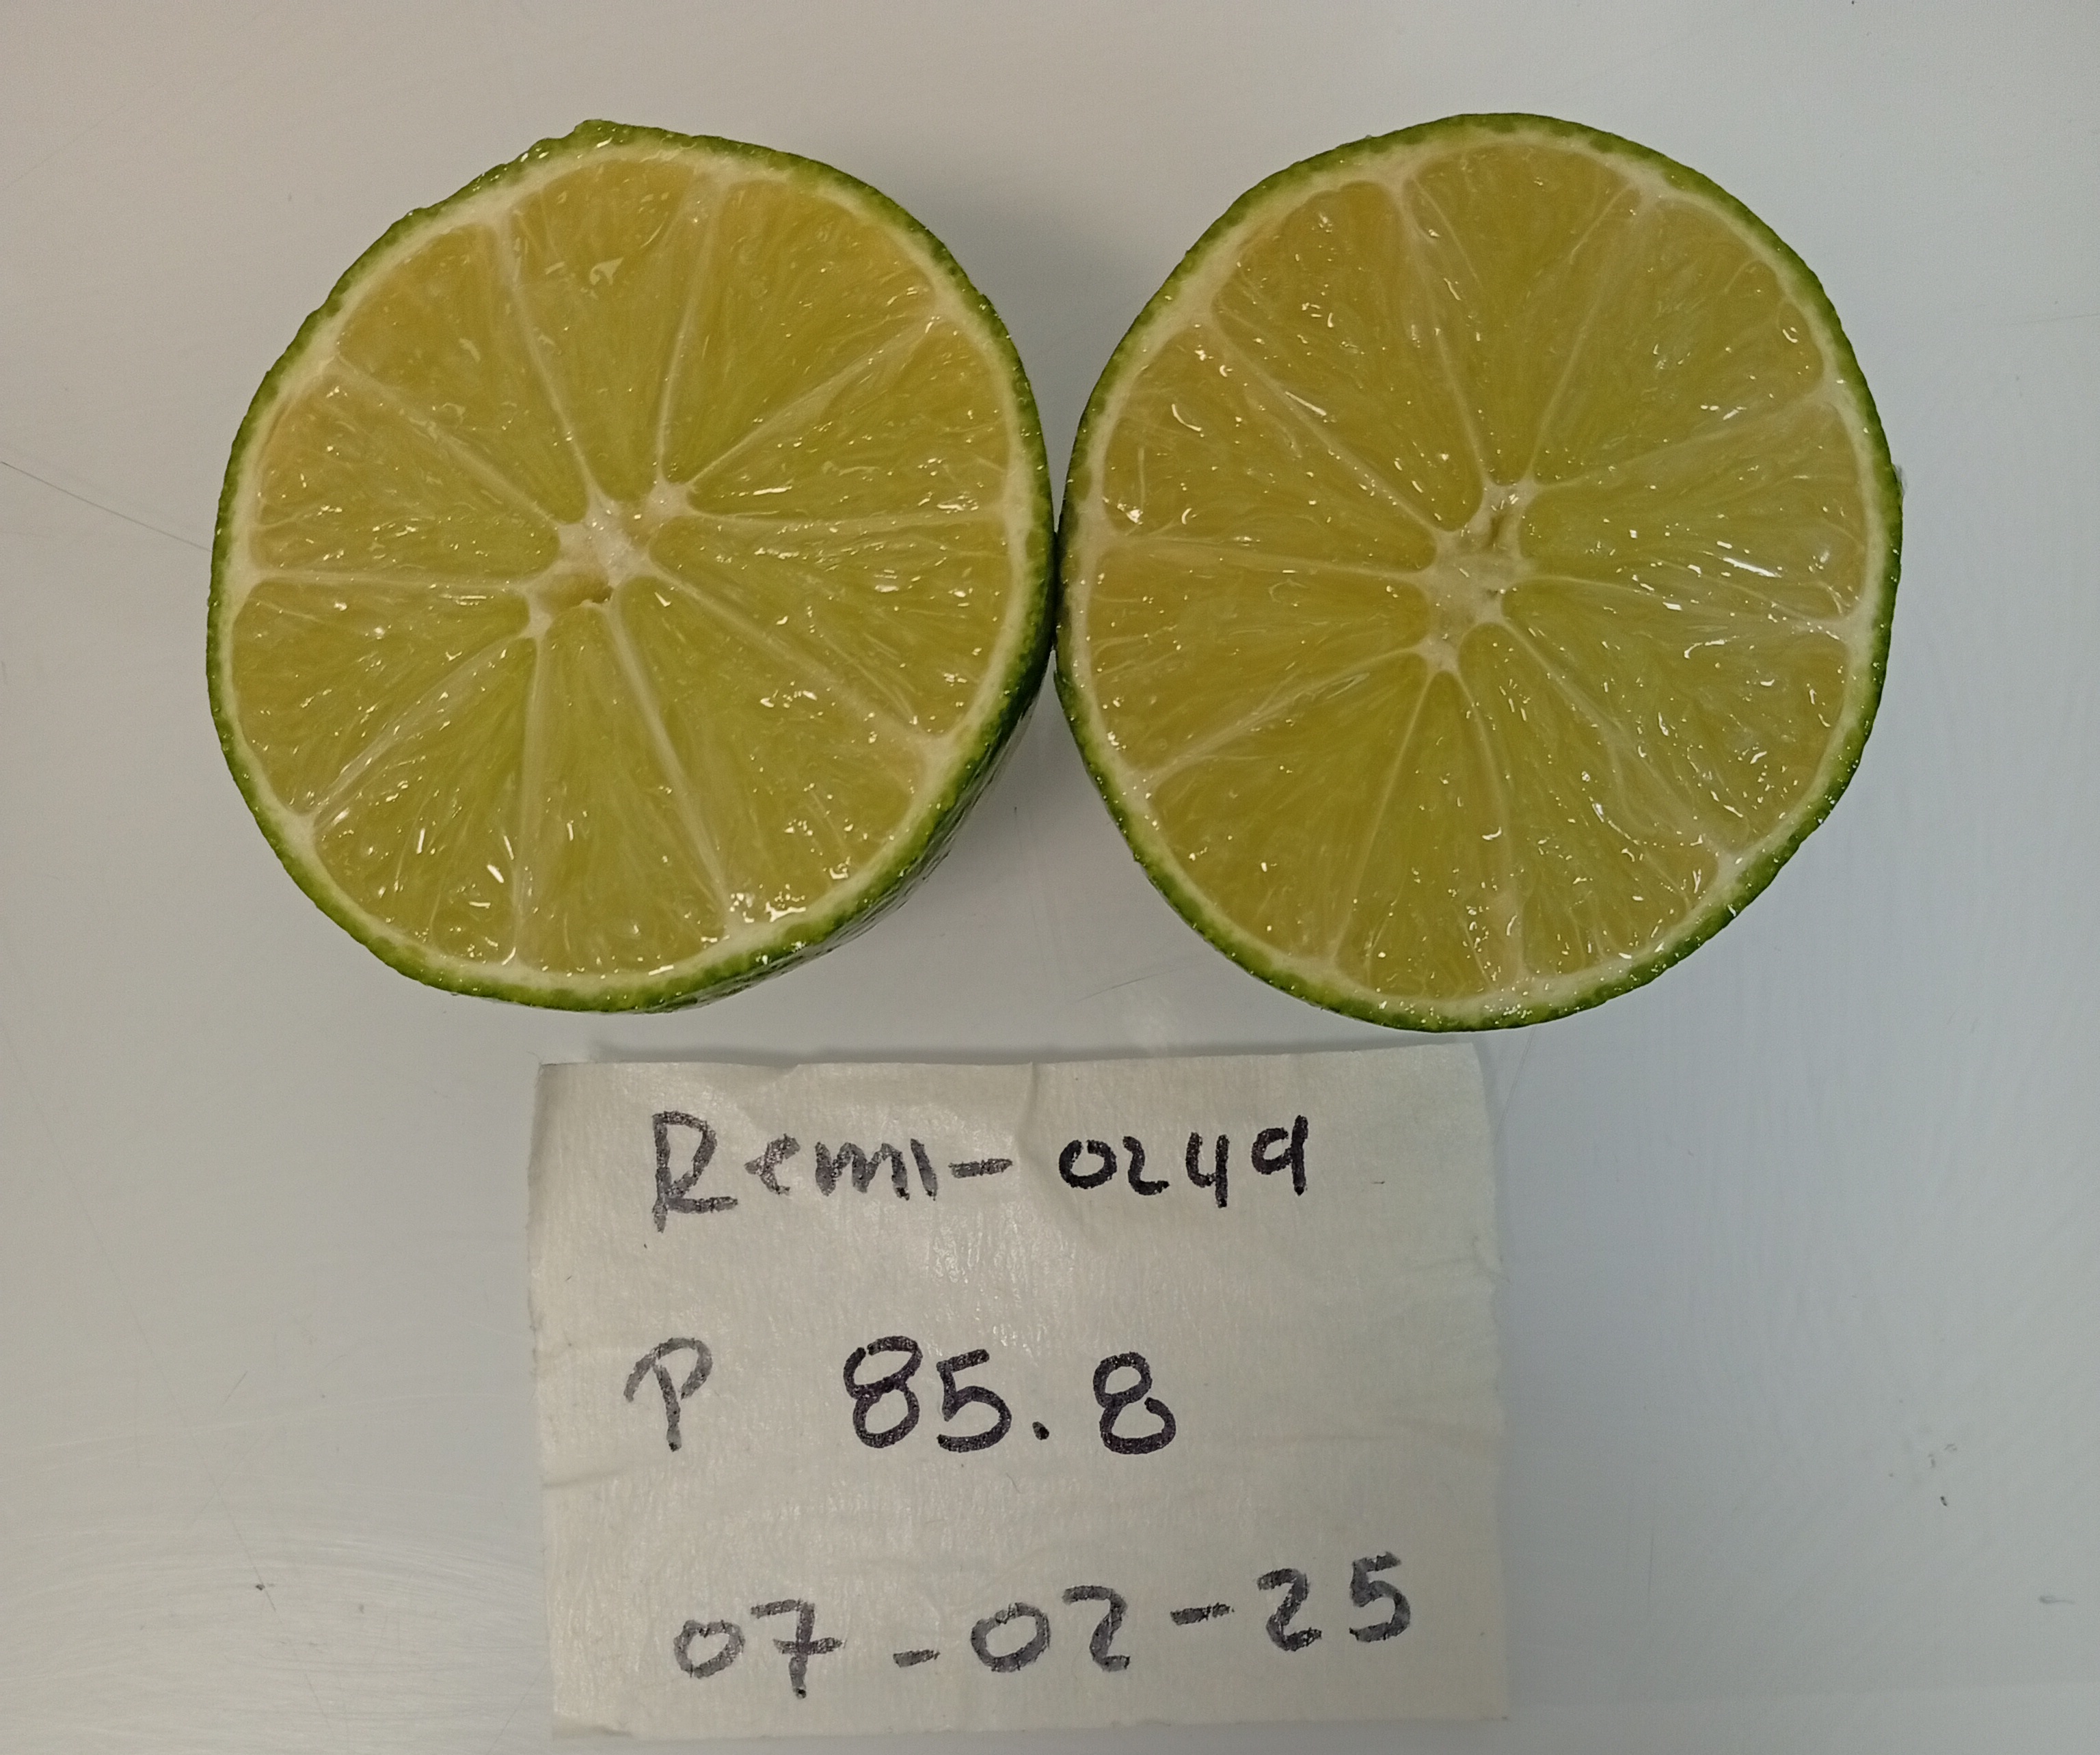 Remi-0249
P 85.8
07-02-25